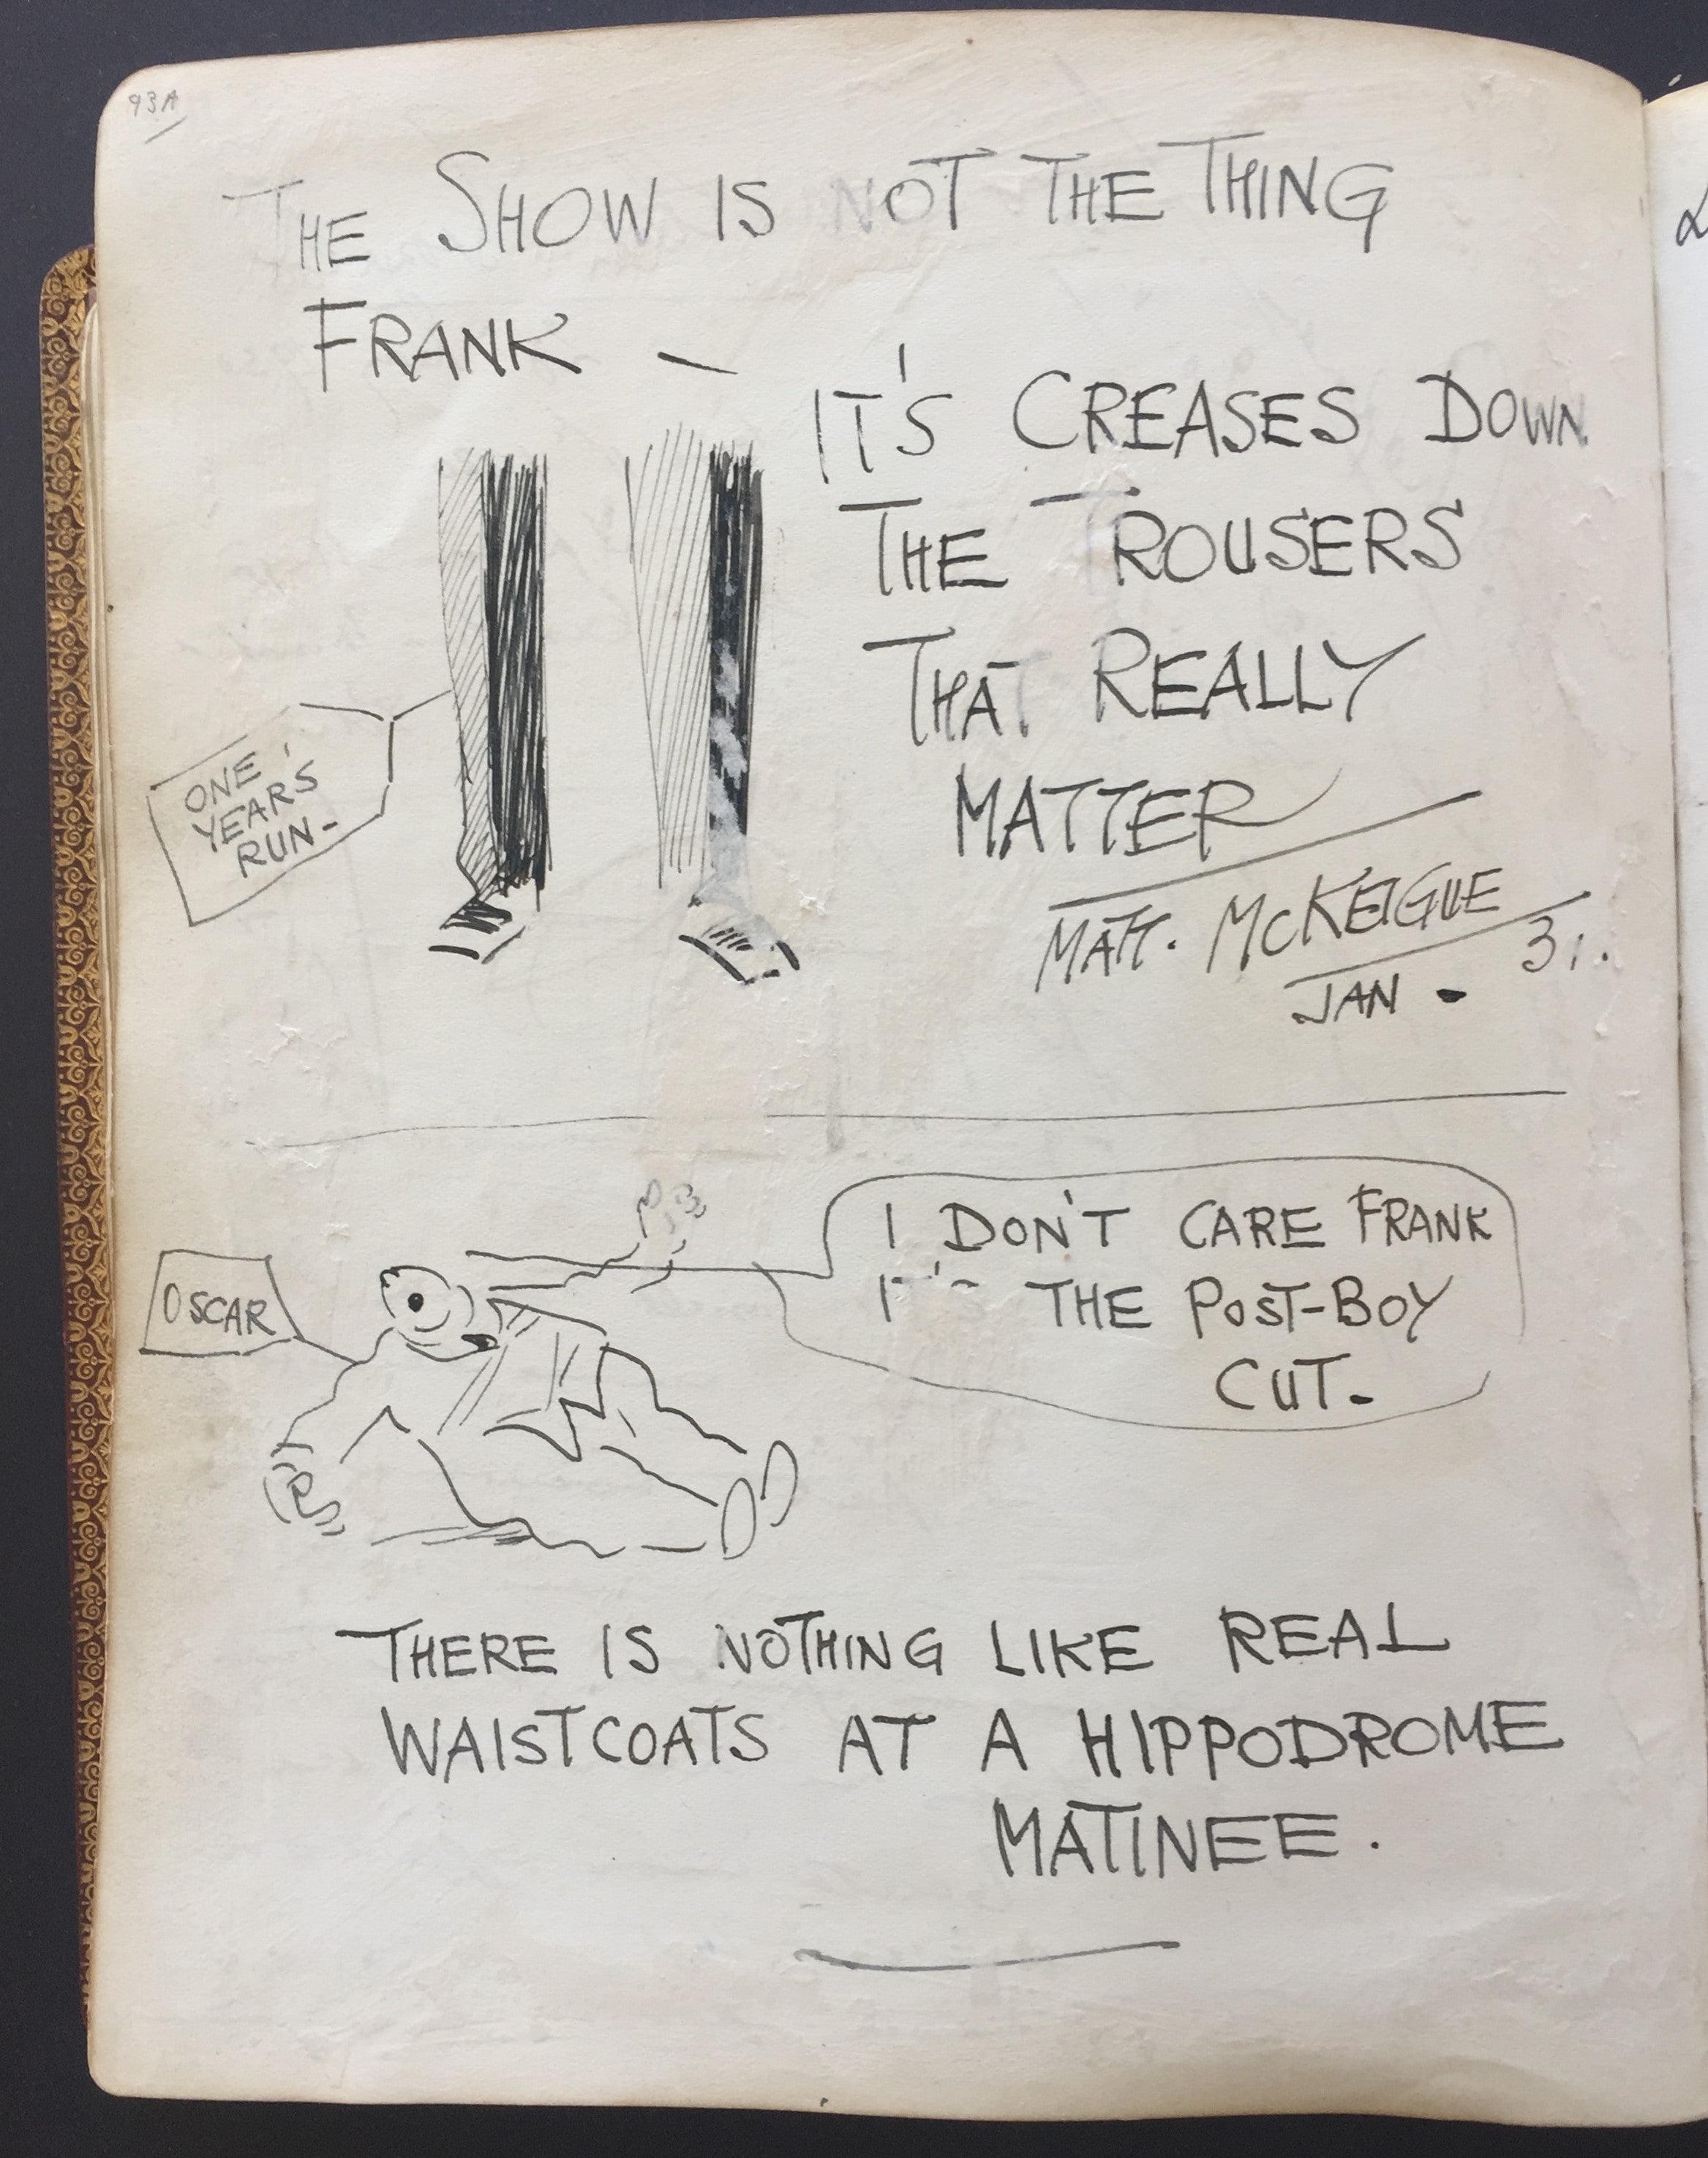 93A
THE SHOW IS NOT THE THING
FRANK -
IT'S CREASES DOWN
THE TROUSERS
THAT REALLY
MATTER
ONE
YEAR'S
RUN-
MATT. MCKEIGUE
JAN - 31.
I DON'T CARE FRANK
IT'S THE POST-BOY
CUT.
OSCAR
THERE IS NOTHING LIKE REAL
WAISTCOATS AT A HIPPODROME
MATINEE.